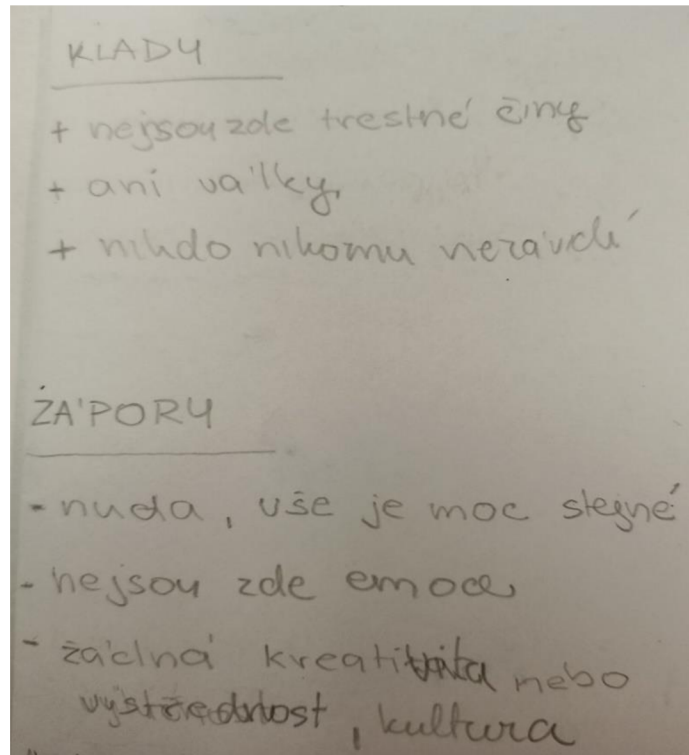 KLADY
+ nejsou zde trestné činy
+ ani války
+ nikdo nikomu nezávidí
ZÁPORY
- nuda, vše je moc stejné
- nejsou zde emoce
- žádná kreativita nebo
výstřednost, kultura